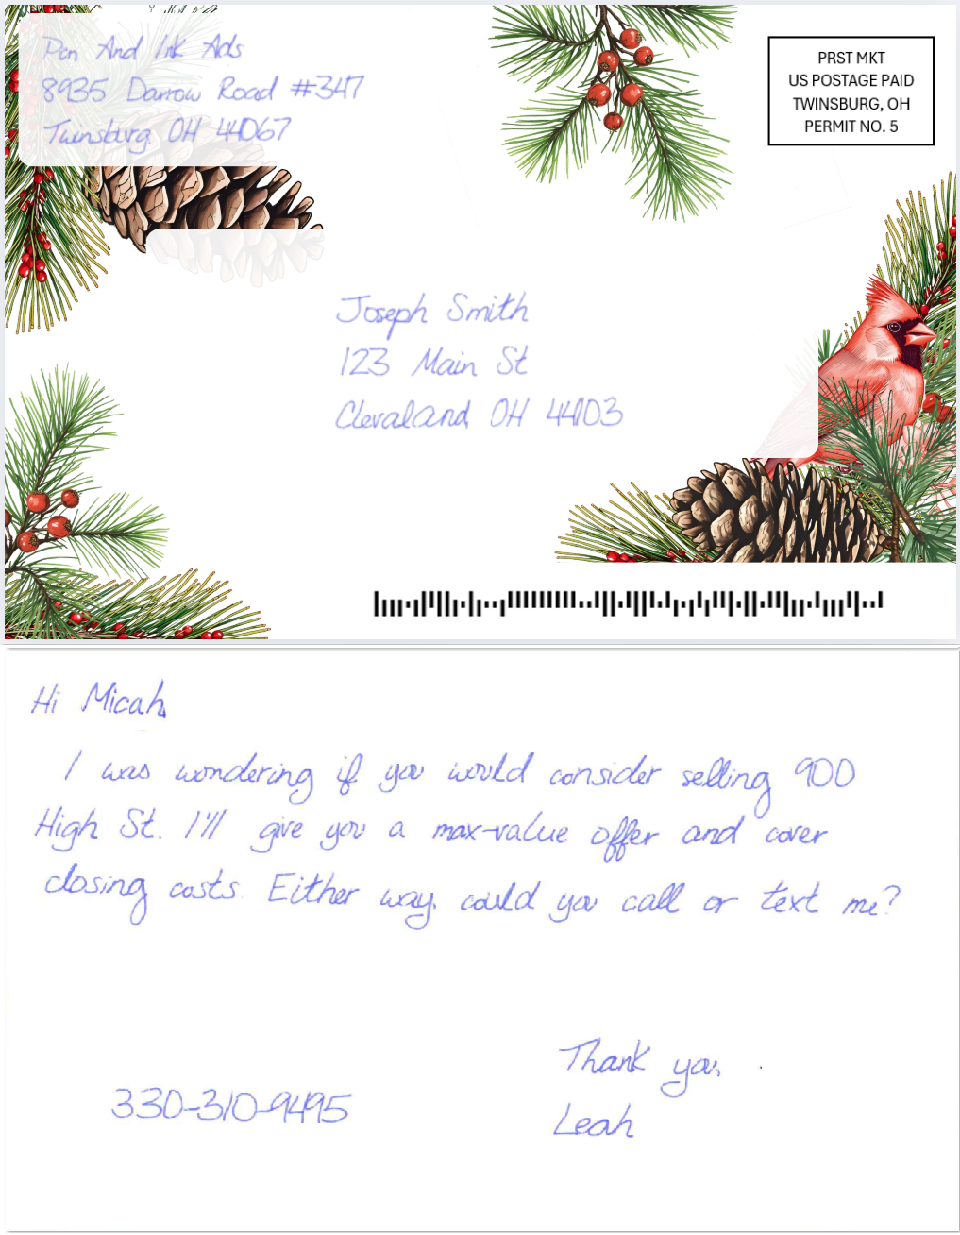 Pen And Ink Ads
8935 Darrow Road #347
Twinsburg, OH 44067
PRST MKT
US POSTAGE PAID
TWINSBURG, OH
PERMIT NO. 5
Joseph Smith
123 Main St
Clevaland OH 44103
Hi Micah,
I was wondering if you would consider selling 900
High St. I'll give you a max-value offer and cover
closing costs. Either way, could you call or text me?
Thank you,
330-310-9495
Leah